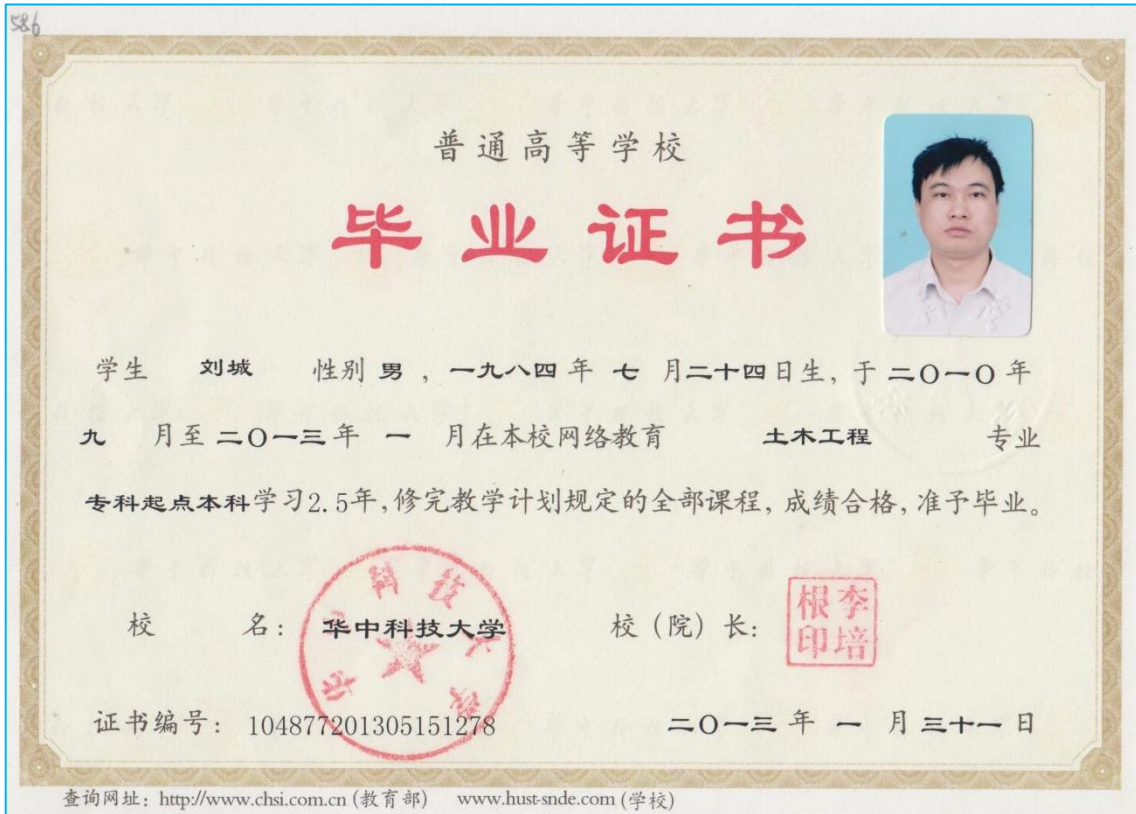 586
普通高等学校
毕业证书
学生 刘城 性别 男 , 一九八四 年 七 月 二十四 日生, 于 二〇一〇 年
九 月至 二〇一三 年 一 月在本校网络教育 土木工程 专业
专科起点本科学习2.5年, 修完教学计划规定的全部课程, 成绩合格, 准予毕业。
校 名: 华中科技大学 校 (院) 长: 李培根印
证书编号: 104877201305151278 二〇一三 年 一 月 三十一 日
查询网址: http://www.chsi.com.cn (教育部) www.hust-snde.com (学校)